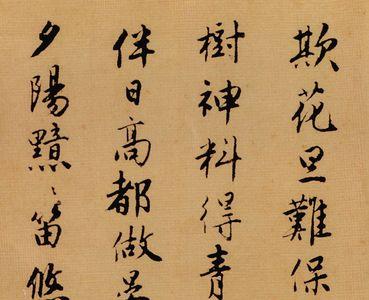 欺花旦難保
樹神料得青
伴日高都做
夕陽黯〻笛悠